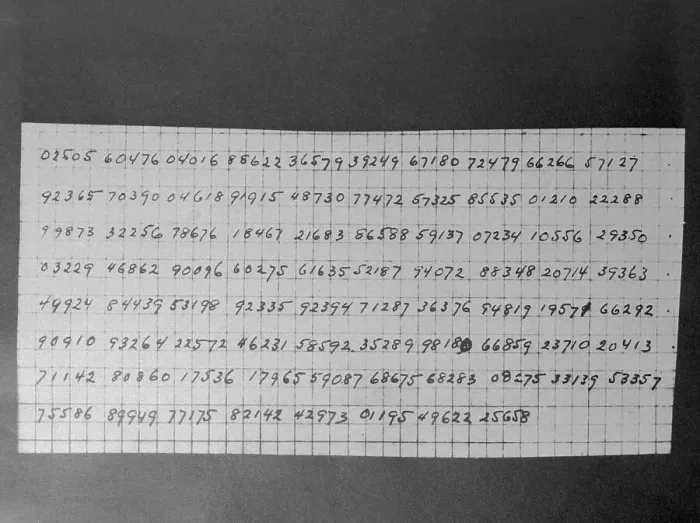 02505 60476 04016 88622 36579 39249 67180 72479 66266 57127
92365 70390 04618 91915 48730 77472 57325 85535 01210 22288
99873 32256 78676 18467 21683 56588 59137 07234 10556 29350
03229 46862 90096 60275 61635 52187 94072 88348 20714 39363
49924 84439 53198 92335 92394 71287 36376 94819 66292
90910 93264 22572 46231 58592 35289 66859 23710 20413
71142 80860 17536 17965 59087 68675 68283 33139 53357
75586 89949 77175 82142 42973 01195 49622 25658